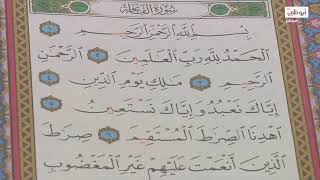 سُورَةُ الفَاتِحَةِ
بِسْمِ ٱللَّهِ ٱلرَّحْمَٰنِ ٱلرَّحِيمِ ١
ٱلْحَمْدُ لِلَّهِ رَبِّ ٱلْعَٰلَمِينَ ٢ ٱلرَّحْمَٰنِ
ٱلرَّحِيمِ ٣ مَٰلِكِ يَوْمِ ٱلدِّينِ ٤
إِيَّاكَ نَعْبُدُ وَإِيَّاكَ نَسْتَعِينُ ٥
ٱهْدِنَا ٱلصِّرَٰطَ ٱلْمُسْتَقِيمَ ٦ صِرَٰطَ
ٱلَّذِينَ أَنْعَمْتَ عَلَيْهِمْ غَيْرِ ٱلْمَغْضُوبِ
أبوظبي